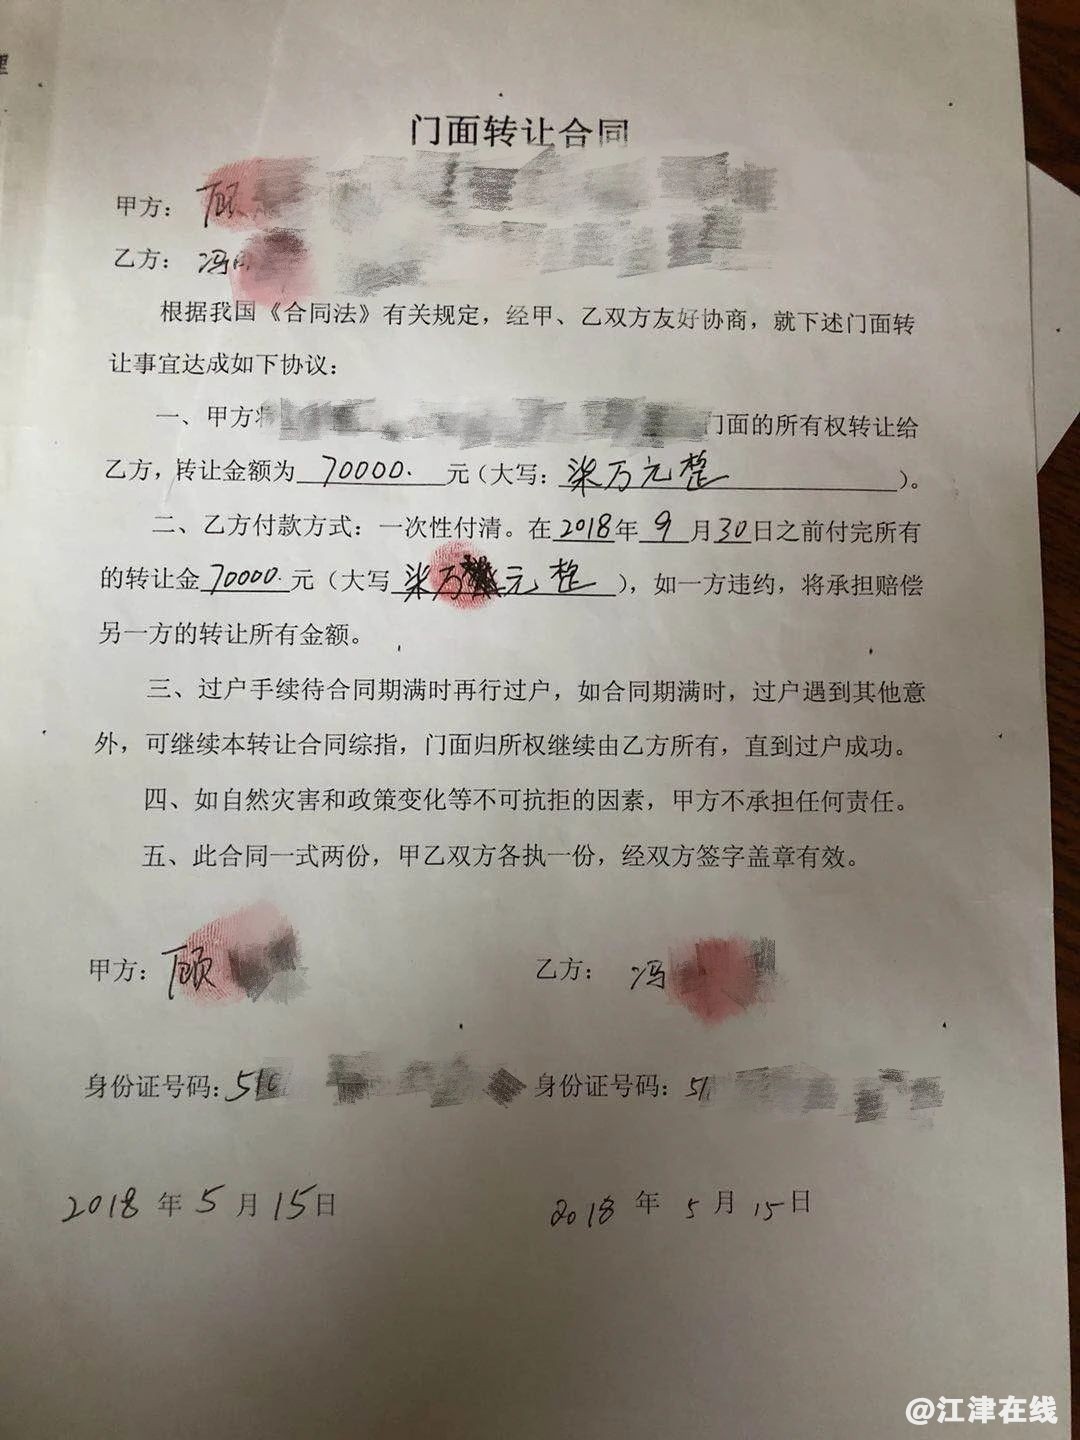 理
门面转让合同
甲方：顾
乙方：冯
根据我国《合同法》有关规定，经甲、乙双方友好协商，就下述门面转
让事宜达成如下协议：
一、甲方将 门面的所有权转让给
乙方，转让金额为70000.元（大写：柒万元整）。
二、乙方付款方式：一次性付清。在2018年9月30日之前付完所有
的转让金70000.元（大写柒万元整），如一方违约，将承担赔偿
另一方的转让所有金额。
三、过户手续待合同期满时再行过户，如合同期满时，过户遇到其他意
外，可继续本转让合同综指，门面归所权继续由乙方所有，直到过户成功。
四、如自然灾害和政策变化等不可抗拒的因素，甲方不承担任何责任。
五、此合同一式两份，甲乙双方各执一份，经双方签字盖章有效。
甲方：顾 乙方：冯
身份证号码：510 身份证号码：51
2018年5月15日 2018年5月15日
@江津在线